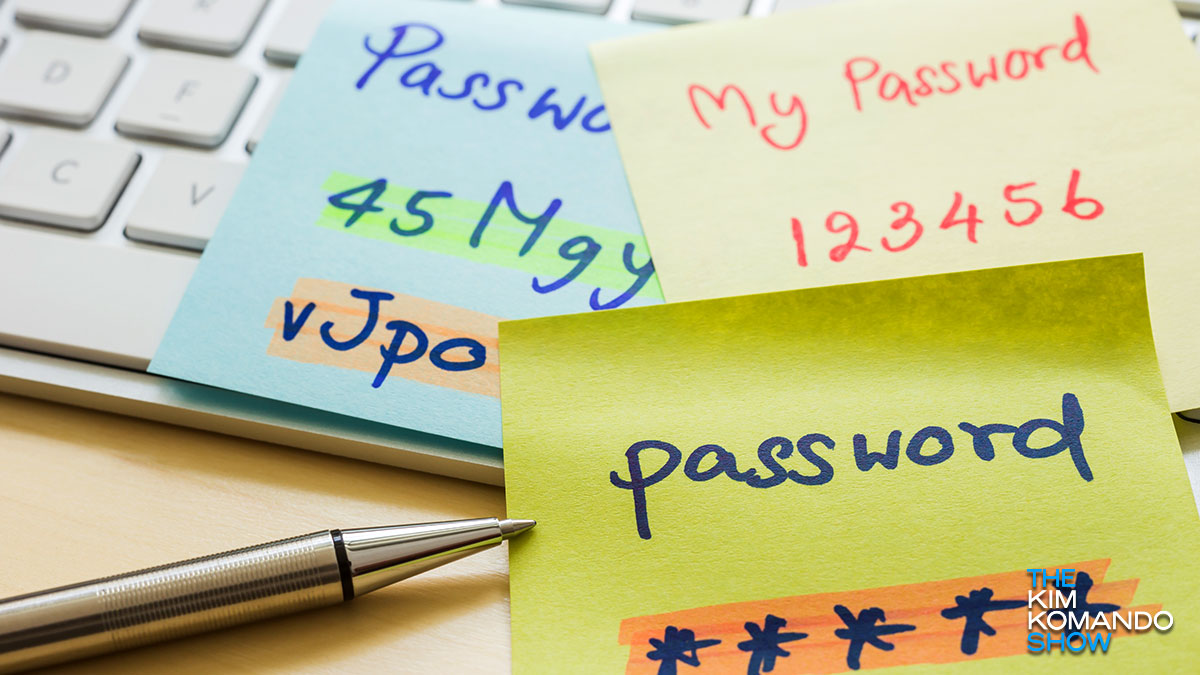 Passwo
45 Mgy
vJpo
My Password
123456
password
*****
D
F
C
V
THE
KIM
KOMANDO
SHOW